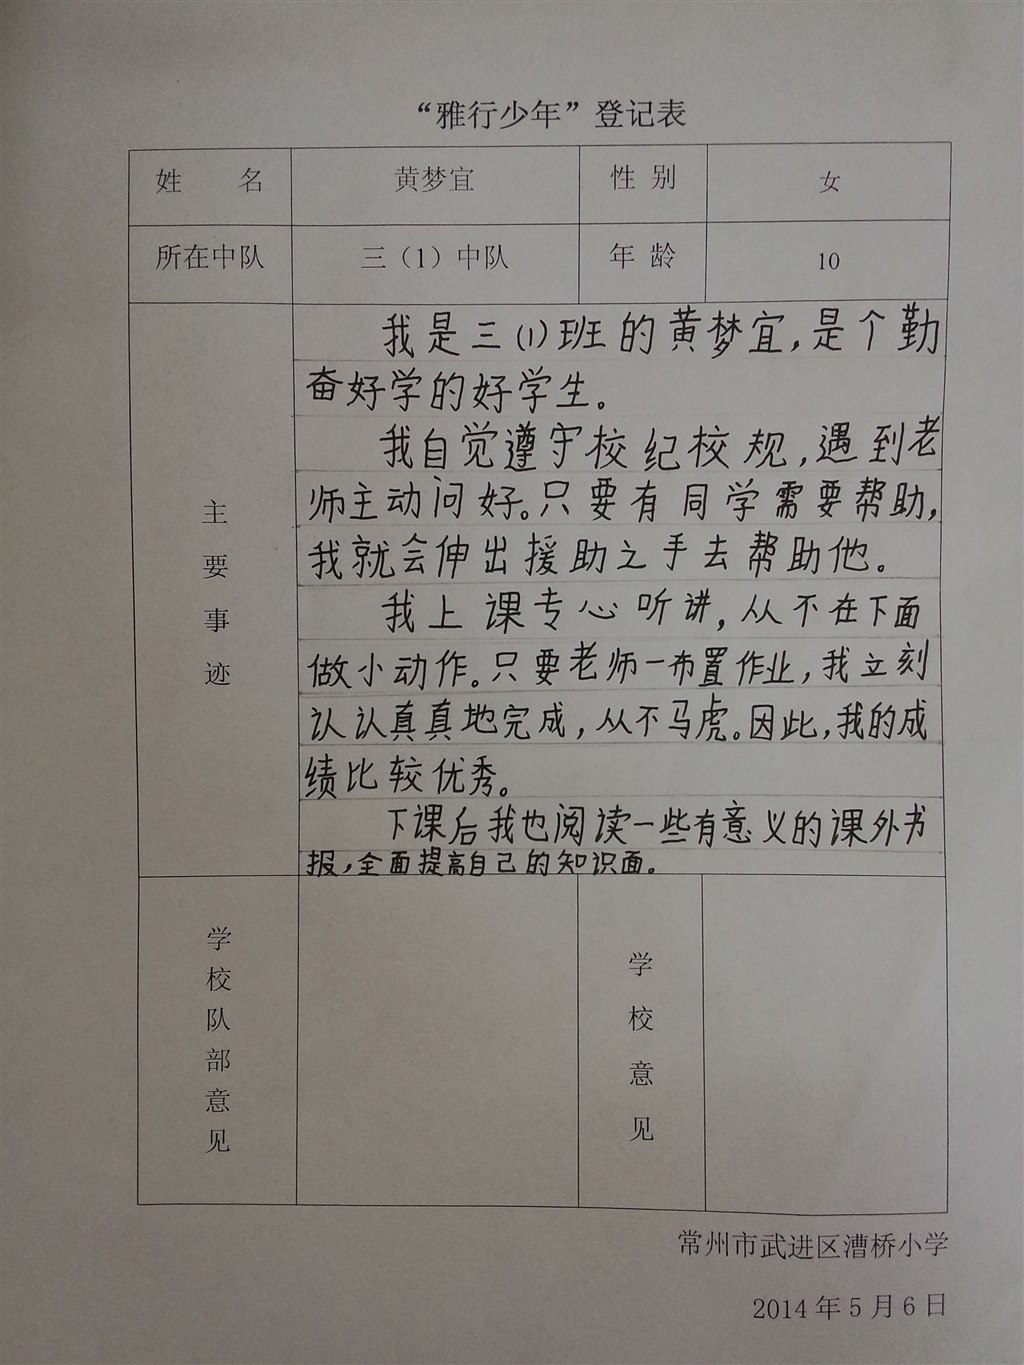 “雅行少年”登记表
姓 名 黄梦宜 性 别 女
所在中队 三（1）中队 年 龄 10
主要事迹
我是三(1)班的黄梦宜,是个勤
奋好学的好学生。
我自觉遵守校纪校规,遇到老
师主动问好。只要有同学需要帮助,
我就会伸出援助之手去帮助他。
我上课专心听讲,从不在下面
做小动作。只要老师一布置作业,我立刻
认认真真地完成,从不马虎。因此,我的成
绩比较优秀。
下课后我也阅读一些有意义的课外书
报,全面提高自己的知识面。
学校队部意见
学校意见
常州市武进区漕桥小学
2014年5月6日